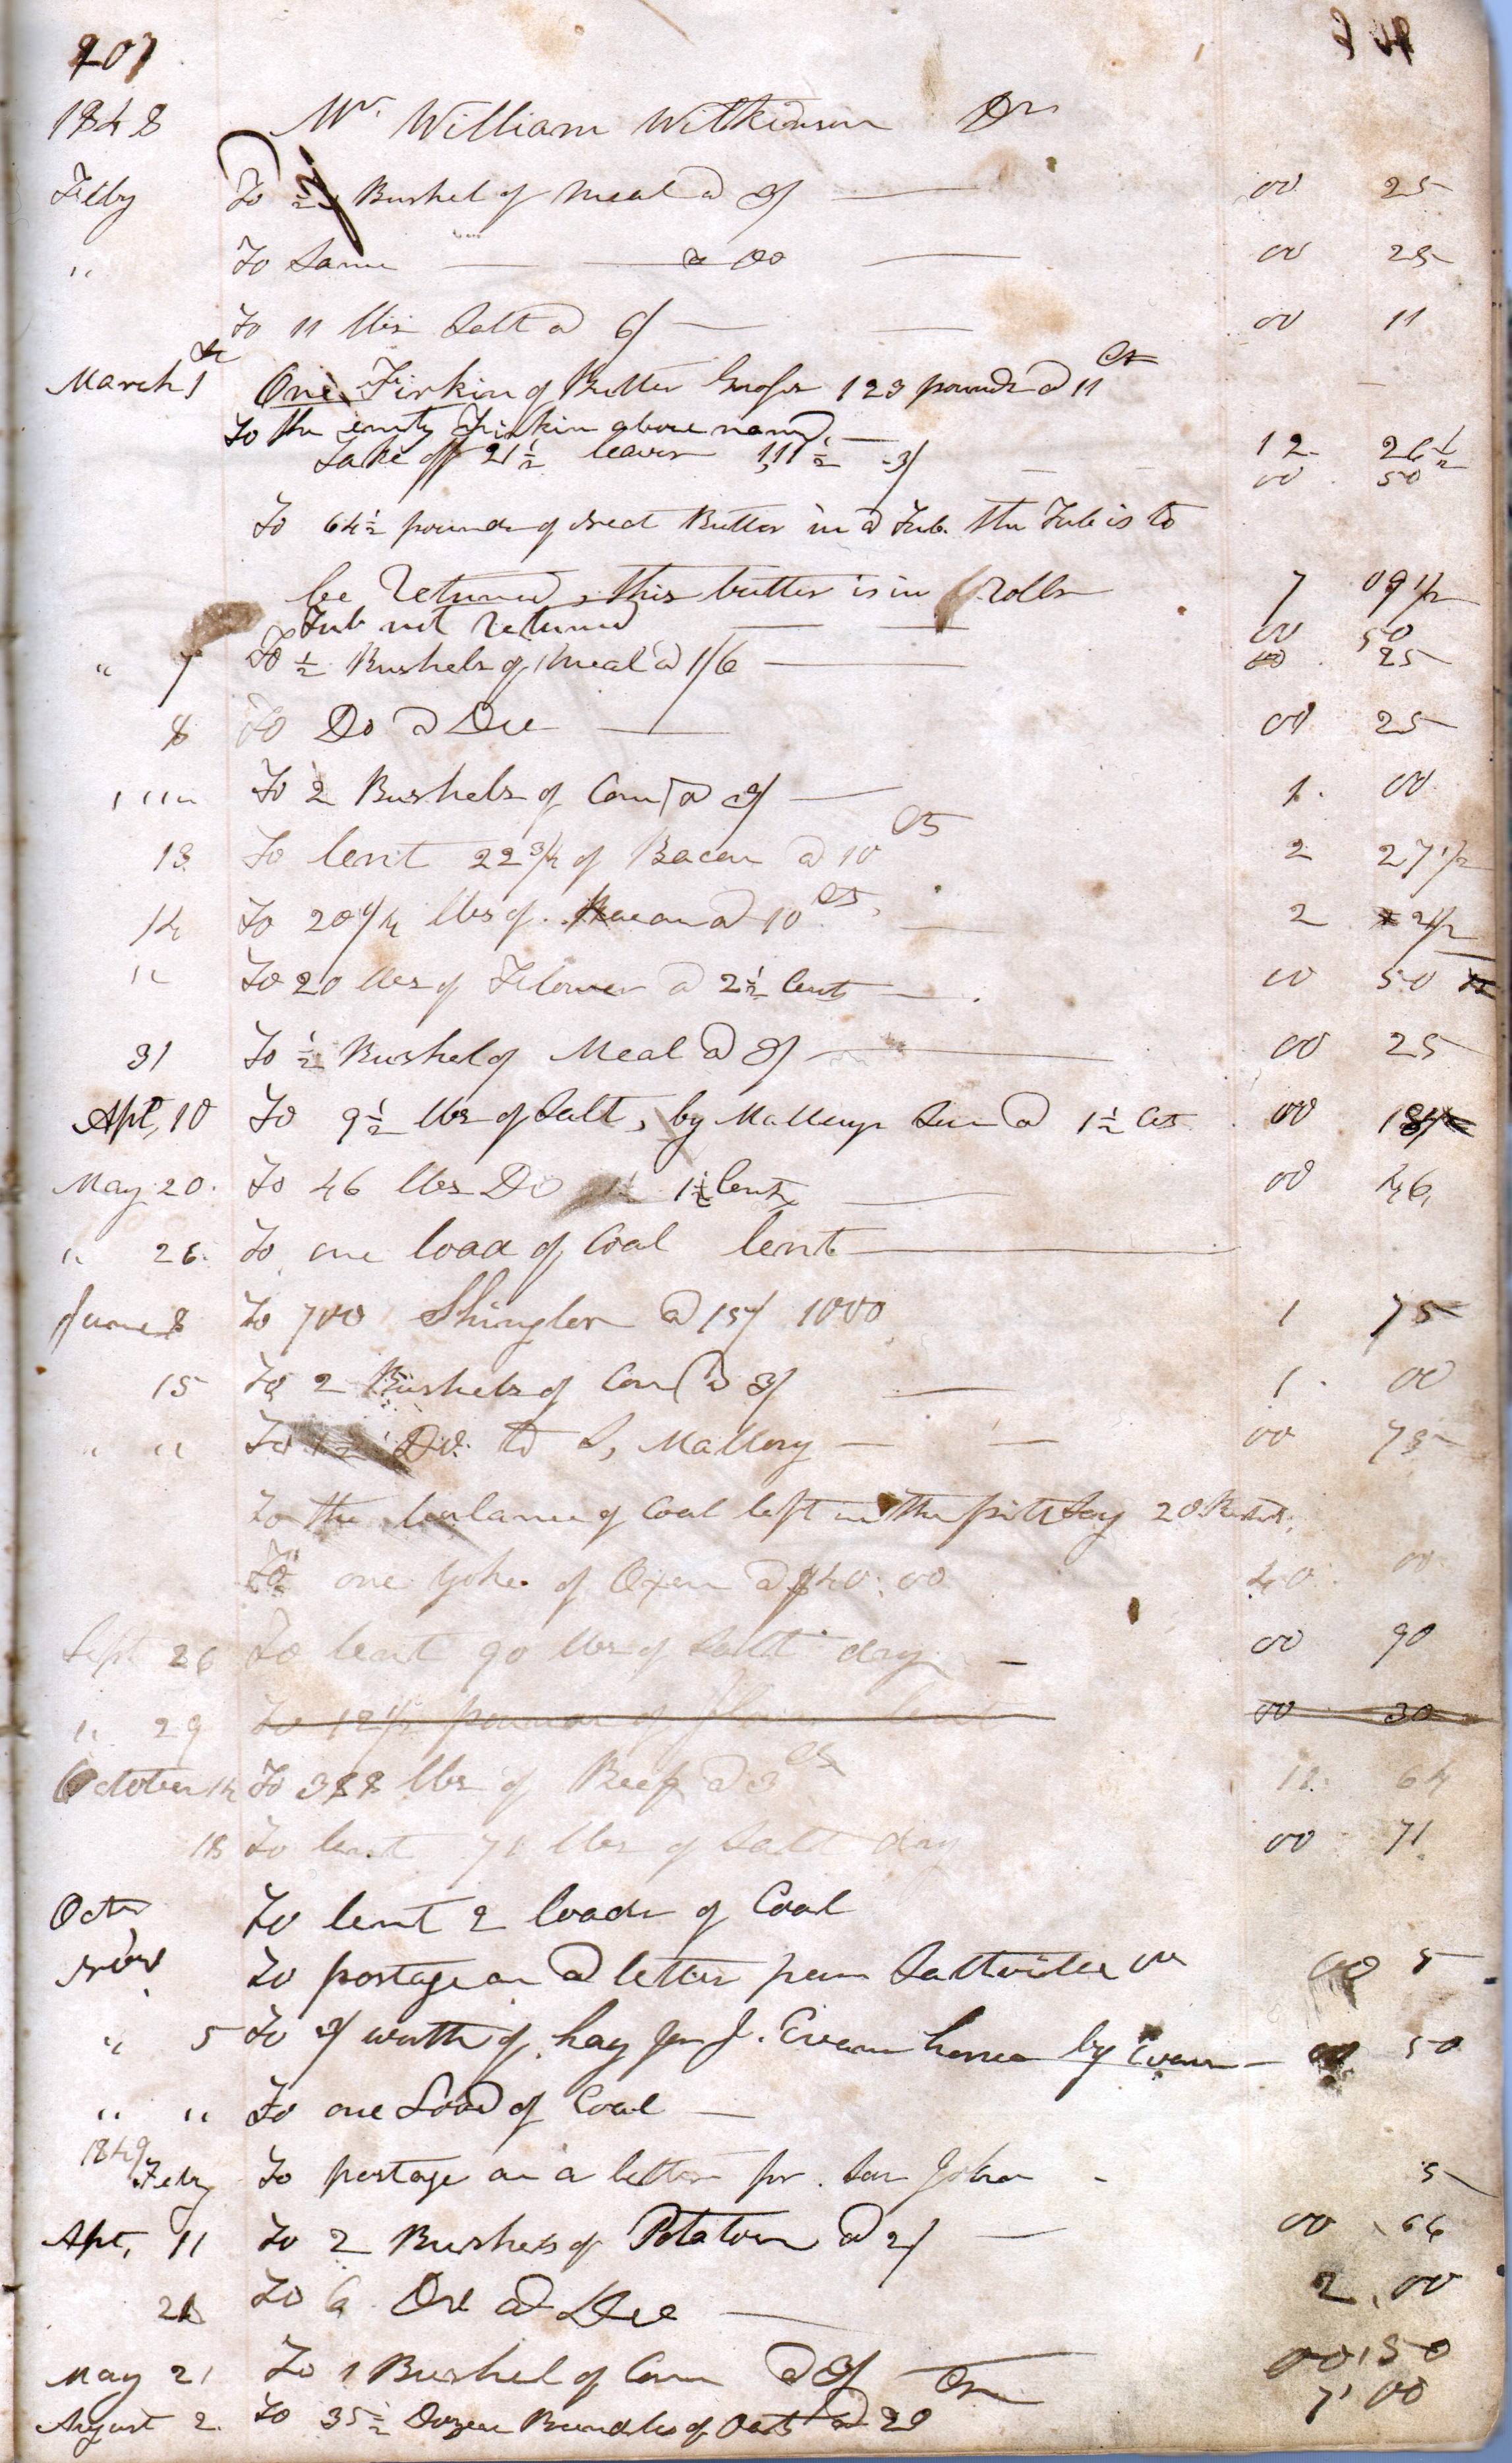 207
1848 Mr. William Wilkinson Dr
Feby To ½ Bushel of Meal @ 3/ 00 25
" To Same @ 00 00 25
To 11 lbs Salt @ 6/ 00 11
March 1st One Firkin of Butter Gross 123 pounds @ 11 cts
To the emty Firkin above named
take off 21½ leaves 111½ 12 26½
00 50
To 64½ pounds of Butter in a Tub. the Tub is to
be Returned, this butter is in Rolls 7 09 1/2
Tub not Returned 00 50
" 7 To ½ Bushels of Meal @ 1/6 00 25
8 To Do @ Do 00 25
" " To 2 Bushels of Corn @ 3/ 1. 00
13 To lent 22 3/4 of Bacon @ 10 cts 2 27 1/2
14 To 20 1/4 lbs of Bacon @ 10 cts, 2 2 1/2
" To 20 lbs of Flower @ 2½ Cents 00 50
31 To ½ Bushel of Meal @ 3/ 00 25
Apl, 10 To 9½ lbs of Salt, by Mallerys Son @ 1½ cts 00
May 20. To 46 lbs Do 1½ Cents 00 46
" 26. To one load of Coal lent
June 8 To 700 Shingles @ 15/ 1000 1 75
15 To 2 Bushels of Corn @ 3/ 1. 00
" " To 1½ Do. to S, Mallory 00 75
To the balance of Coal left in the pitt Say 20 Bushels,
To one yoke of Oxen @ $40.00 40. 00
Sept 26 To lent 90 lbs of Salt dry 00 90
" 29 To 12 1/2 pounds of flower lent 00 30
October 14 To 388 lbs of Beef @ 3 cts 11. 64
18 To lent 71 lbs of Salt dry 00 71
Octr To lent 2 loads of Coal
Nov To postage on a letter from Saltville 00 5
" 5 To 3/ worth of hay for J. Evans horse by Evans 00 50
" " To one Load of Coal
1849
Feby To postage on a letter for son John 5
Apl, 11 To 2 Bushels of Potatoes @ 2/ 00 66
To 6 Do @ Do 2.00
May 21 To 1 Bushel of Corn @ 3/ 00.50
August 2. To 35½ Dozen Bundles of Oats @ 20 7.00